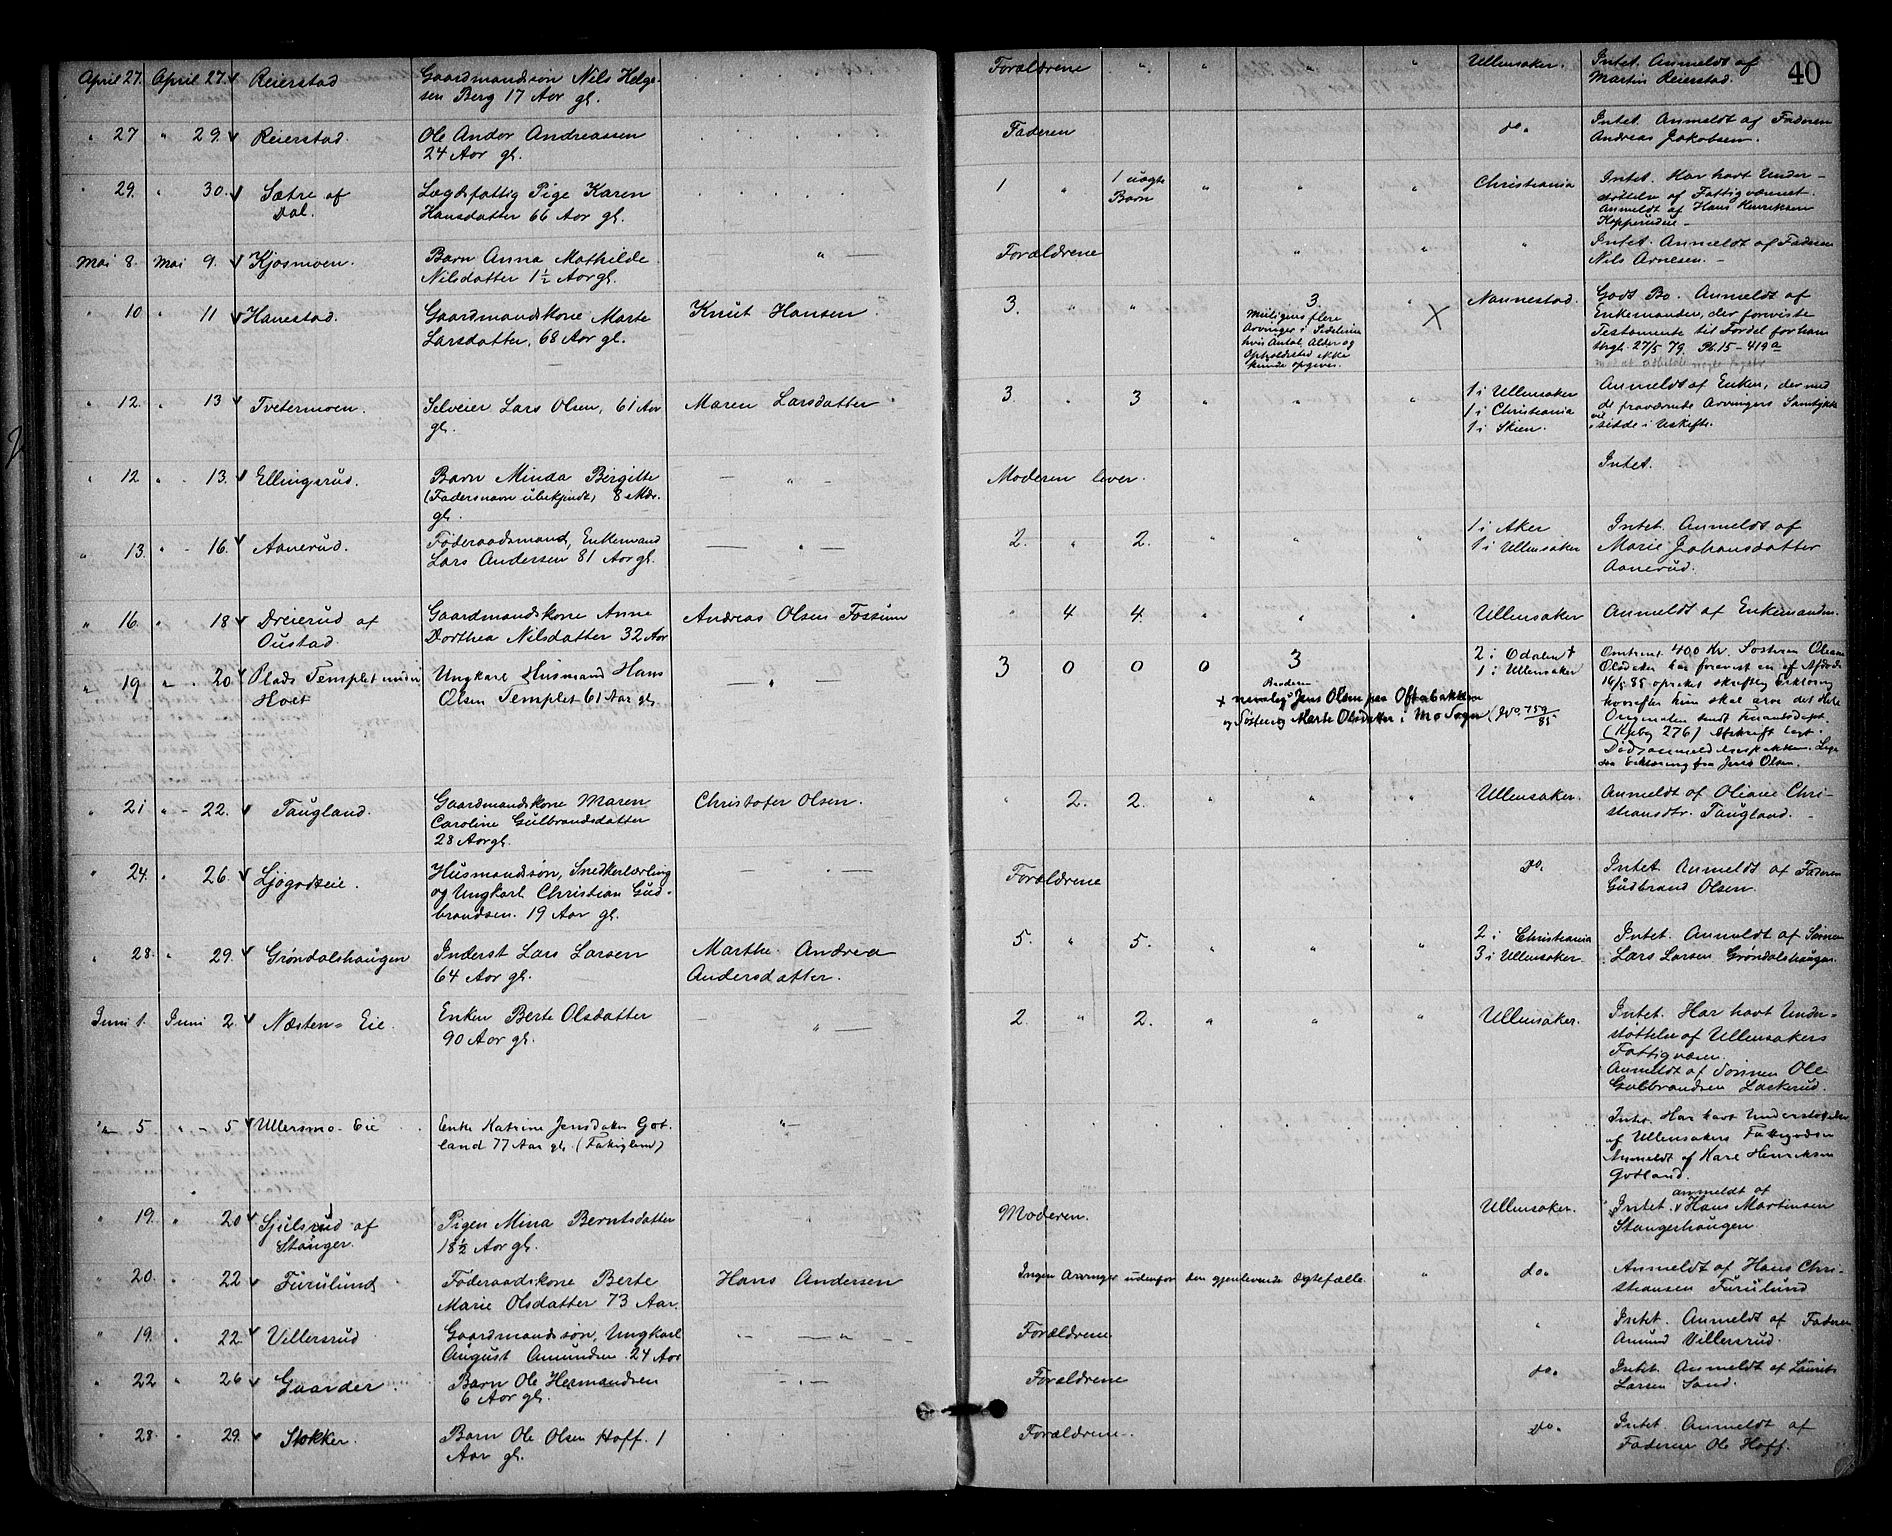 40
April 27. April 27. Reierstad Gaardmandssøn Nils Helge- Forældrene " " " " " Ullensaker. Intet. Anmeldt af
sen Berg 17 Aar gl. Martin Reierstad.
" 27 " 29. Reierstad Ole Andor Andreassen Faderen do. Intet. Anmeldt af Faderen
24 Aar gl. Andreas Jakobsen.
" 29. " 30. Sætre af Lægdsfattig Pige Karen 1 " 1 uægte " " " Christiania Intet. Har havt Under-
Dal. Hansdatter 66 Aar gl. Barn støttelse af Fattigvæsenet.
Anmeldt af Hans Henriksen
Kopperudeie
Mai 8. Mai 9. Kjosmoen. Barn Anna Mathilde " Forældrene " " " Intet. Anmeldt af Faderen
Nilsdatter 1½ Aar gl. Nils Arnesen.
" 10 " 11 Hanestad. Gaardmandskone Marte Knut Hansen 3. " " 3 " X Nannestad. Godt Bo. Anmeldt af
Larsdatter, 68 Aar gl. Muligens flere Enkemanden, der foreviste
Arvinger i Testamente til Fordel for ham
hvis Antal, Alder og thgl. 27/5 79. Pb. 15-419a
Opholdssted ikke
kunde opgives.
" 12. " 13 Tvetermoen. Selveier Lars Olsen, 61 Aar Maren Larsdatter 3. " 3 " " " 1 i Ullensaker Anmeldt af Enken, der med
gl. 1 i Christiania de praværende Arvingers Samtykke
1 i Skien. vil sidde i Uskifte.
" 12 " 13. Ellingsrud. Barn Minda Birgitte " Moderen lever. Intet.
(Fadersnavn ubekjendt) 8 Mdr.
gl.
" 13. " 16. Aanerud. Føderaadsmand, Enkemand " 2. " 2. " " " 1 i Aker Intet. Anmeldt af
Lars Andersen 81 Aar gl. 1 i Ullensaker Marie Johansdatter
Aanerud.
" 16. " 18 Dreierud af Gaardmandskone Anne Andreas Olsen Fossum " 4 4. " " " Ullensaker Anmeldt af Enkemanden.
Oustad. Dorthea Nilsdatter 32 Aar
" 19 " 20 Plads Templet under Ungkarl Husmand Hans " 3 0 0 0 3 2 i Odalen + Omtrent 400 Kr. Søsteren Oliane
Hoet Olsen Templet 61 Aar gl. 1 i Ullensaker Olsdatter har forevist en af Afdøde
Broderen 16/5 85 oprettet skriftlig Erklæring
+ nemlig Jens Olsen paa Oftebakken hvorefter hun skal arve det Hele
og Søsteren Marte Olsdatter i Mo Sogn (J No 759/85 Originalen sendt Finantsdept.
(Kpbg 276) Afskrift lagt
Dødsanmeldelsespakken. Lige
saa Erklæring fra Jens Olsen.
" 21 " 22. Taugland. Gaardmandskone Maren Christofer Olsen. " 2. 2. " " " Ullensaker. Anmeldt af Oliane Chri-
Caroline Gulbrandsdatter stiansdtr. Taugland.
28 Aar gl.
" 24. " 26. Ljøgodteie. Husmandssøn, Snedkerlærling " Forældrene do. Intet. Anmeldt af Faderen
og Ungkarl Christian Gud- Gudbrand Olsen.
brandsen. 19 Aar gl.
" 28. " 29. Grøndalshaugen Inderst Lars Larsen Marthe Andrea 5. " 5. " " " 2 i Christiania Intet. Anmeldt af Sønnen
64 Aar gl. Andersdatter. 3 i Ullensaker. Lars Larsen Grøndalshaugen.
Juni 1. Juni 2. Næsten-Eie. Enken Berte Olsdatter " 2. " 2. " " " Ullensaker. Intet. Har havt Under-
90 Aar gl. støttelse af Ullensakers
Fattigvæsen.
Anmeldt af Sønnen Ole
Gulbrandsen Laekerud.
" 5 " 5 Ullersmo-Eie Enke Katrine Jensdatter Got- " Intet. Har havt Understøttelse
land 77 Aar gl. (Fattiglem) af Ullensakers Fattigvæsen
Anmeldt af Karl Henriksen
Gotland.
" 19. " 20 Sjulsrud af Pigen Mina Berntsdatter Moderen. Ullensaker. Intet. anmeldt af Hans Martinsen
Stanger. 18½ Aar gl. Stangerhaugen.
" 20. " 22 Furulund Føderaadskone Berte Hans Andersen Ingen Arvinger udenfor den gjenlevende Ægtefælle. " do. Anmeldt af Hans Chri-
Marie Olsdatter 73 Aar. stiansen Furulund
" 19. " 22. Villersrud Gaardmandssøn, Ungkarl " Forældrene " Intet. Anmeldt af Faderen
August Amundsen 24 Aar Amund Villersrud.
" 22 " 26 Gaarder. Barn Ole Hermandsen " Forældrene do. Intet. Anmeldt af Laurits
6 Aar gl. Larsen Sand.
" 28. " 29. Stokker. Barn Ole Olsen Hoff. 1 Forældrene. do. Intet. Anmeldt af
Aar gl. Faderen Ole Hoff.